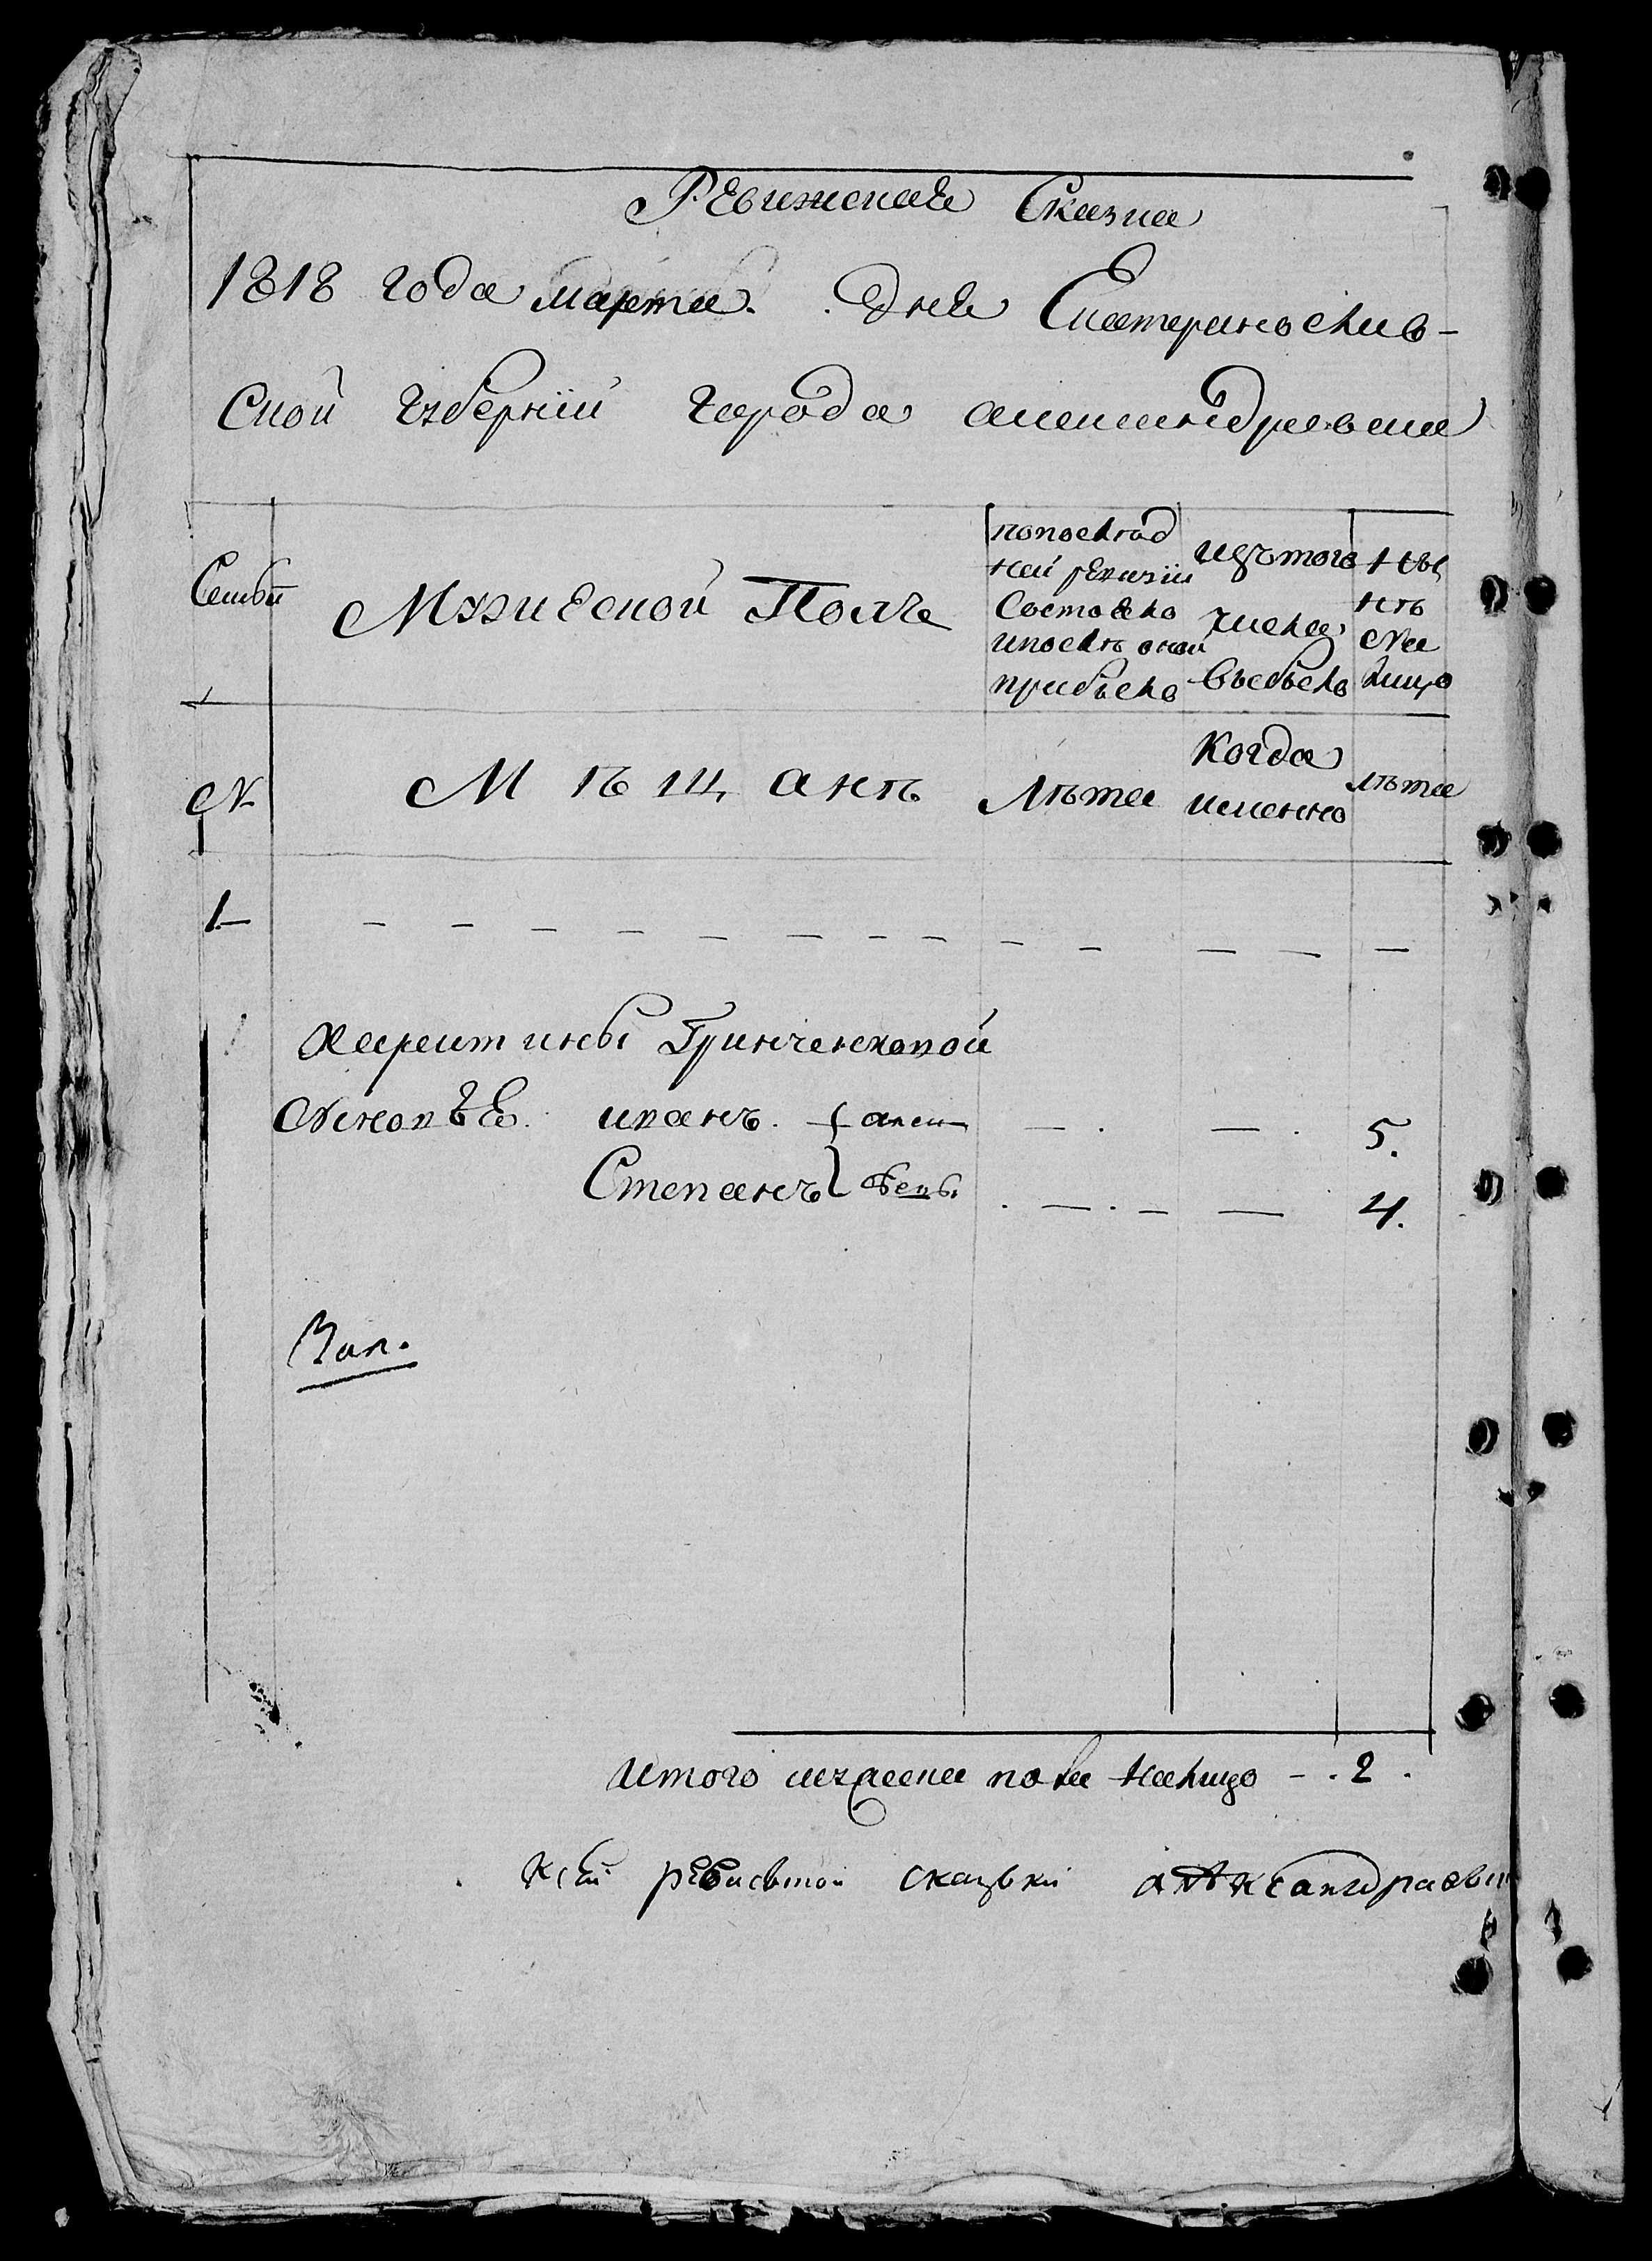 Ревижская Сказка
1818 года марта. . дня Екатеринослив-
ской губернии города александровска
Семьи
Мужеской Полъ
попослѣд
ней ревизіи
Состояло
ипослѣ оной
прибыло
изътого
числа
выбыло
Ны
нѣ
на
лицо
№
Мѣщанъ
Лѣта
Когда
именно
лѣта
1.
Харитины Гринченковой
Сыновья. иванъ. 5.
Степанъ 4.
итого мужеска пола налицо - . 2 .
Ксей ревиской сказьки